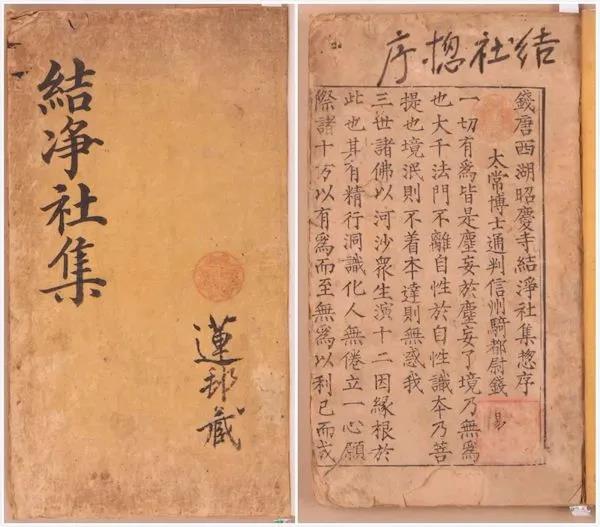 結净社集
蓮邦藏
结社揔序
錢唐西湖昭慶寺結淨社集揔序
太常博士通判信州騎都尉錢易
一切有爲皆是塵妄於塵妄了境乃無爲
也大千法門不離自性於自性識本乃菩
提也境泯則不着本達則無惑我
三世諸佛以河沙衆生演十二因緣根於
此也其有精行洞識化人無倦立一心願
際諸十方以有爲而至無爲以利已而或